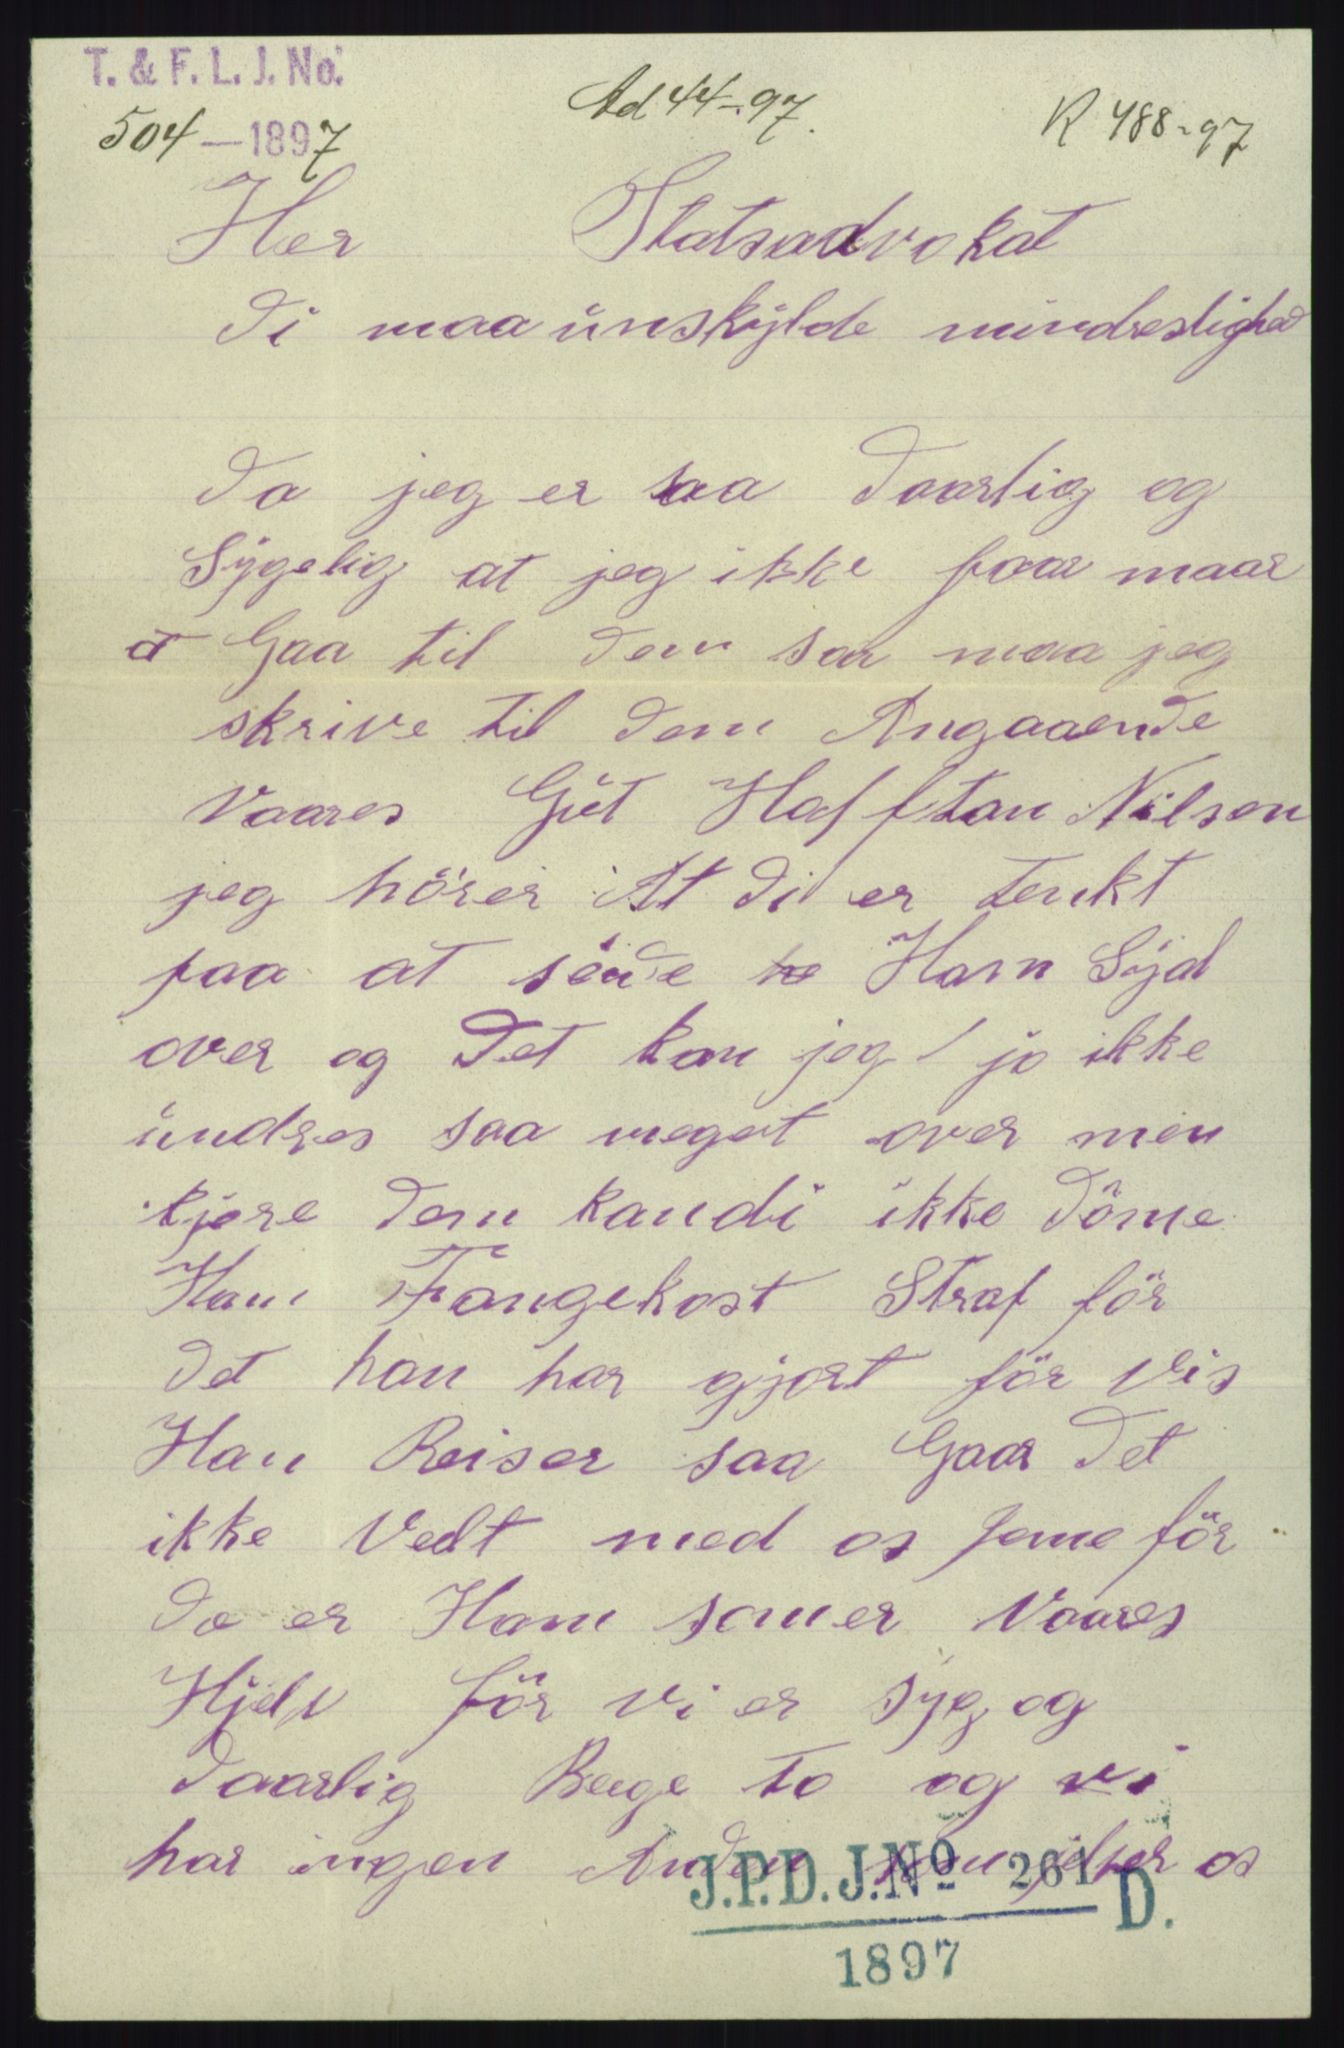 T. & F. L. J. No.
504 — 1897
Ad 44-97.
R 488-97
Her Statsadvokat
di maa ùnskýlde mindreslighed
da jeg er saa daarlig og
Sýgelig at jeg ikke faar maar
at Gaa til dem saa maa jeg
skrive til dem Angaaende
Vaares Gùt Halftan Nilsen
jeg hörer At di er tenkt
paa at sende Ham Sýd
over og Det kan jeg jo ikke
ùndres saa meget over men
kjere dem kan di ikke döme
Ham Fangekost Straf för
det han har gjort för vis
Han Reiser saa Gaar det
ikke Velt med os Jeme för
da er Ham som er Vaares
Hjelp för vi er syg og
daarlig Bege to og vi
har ingen Anden som os
J.P.D.J.No 261 D.
1897